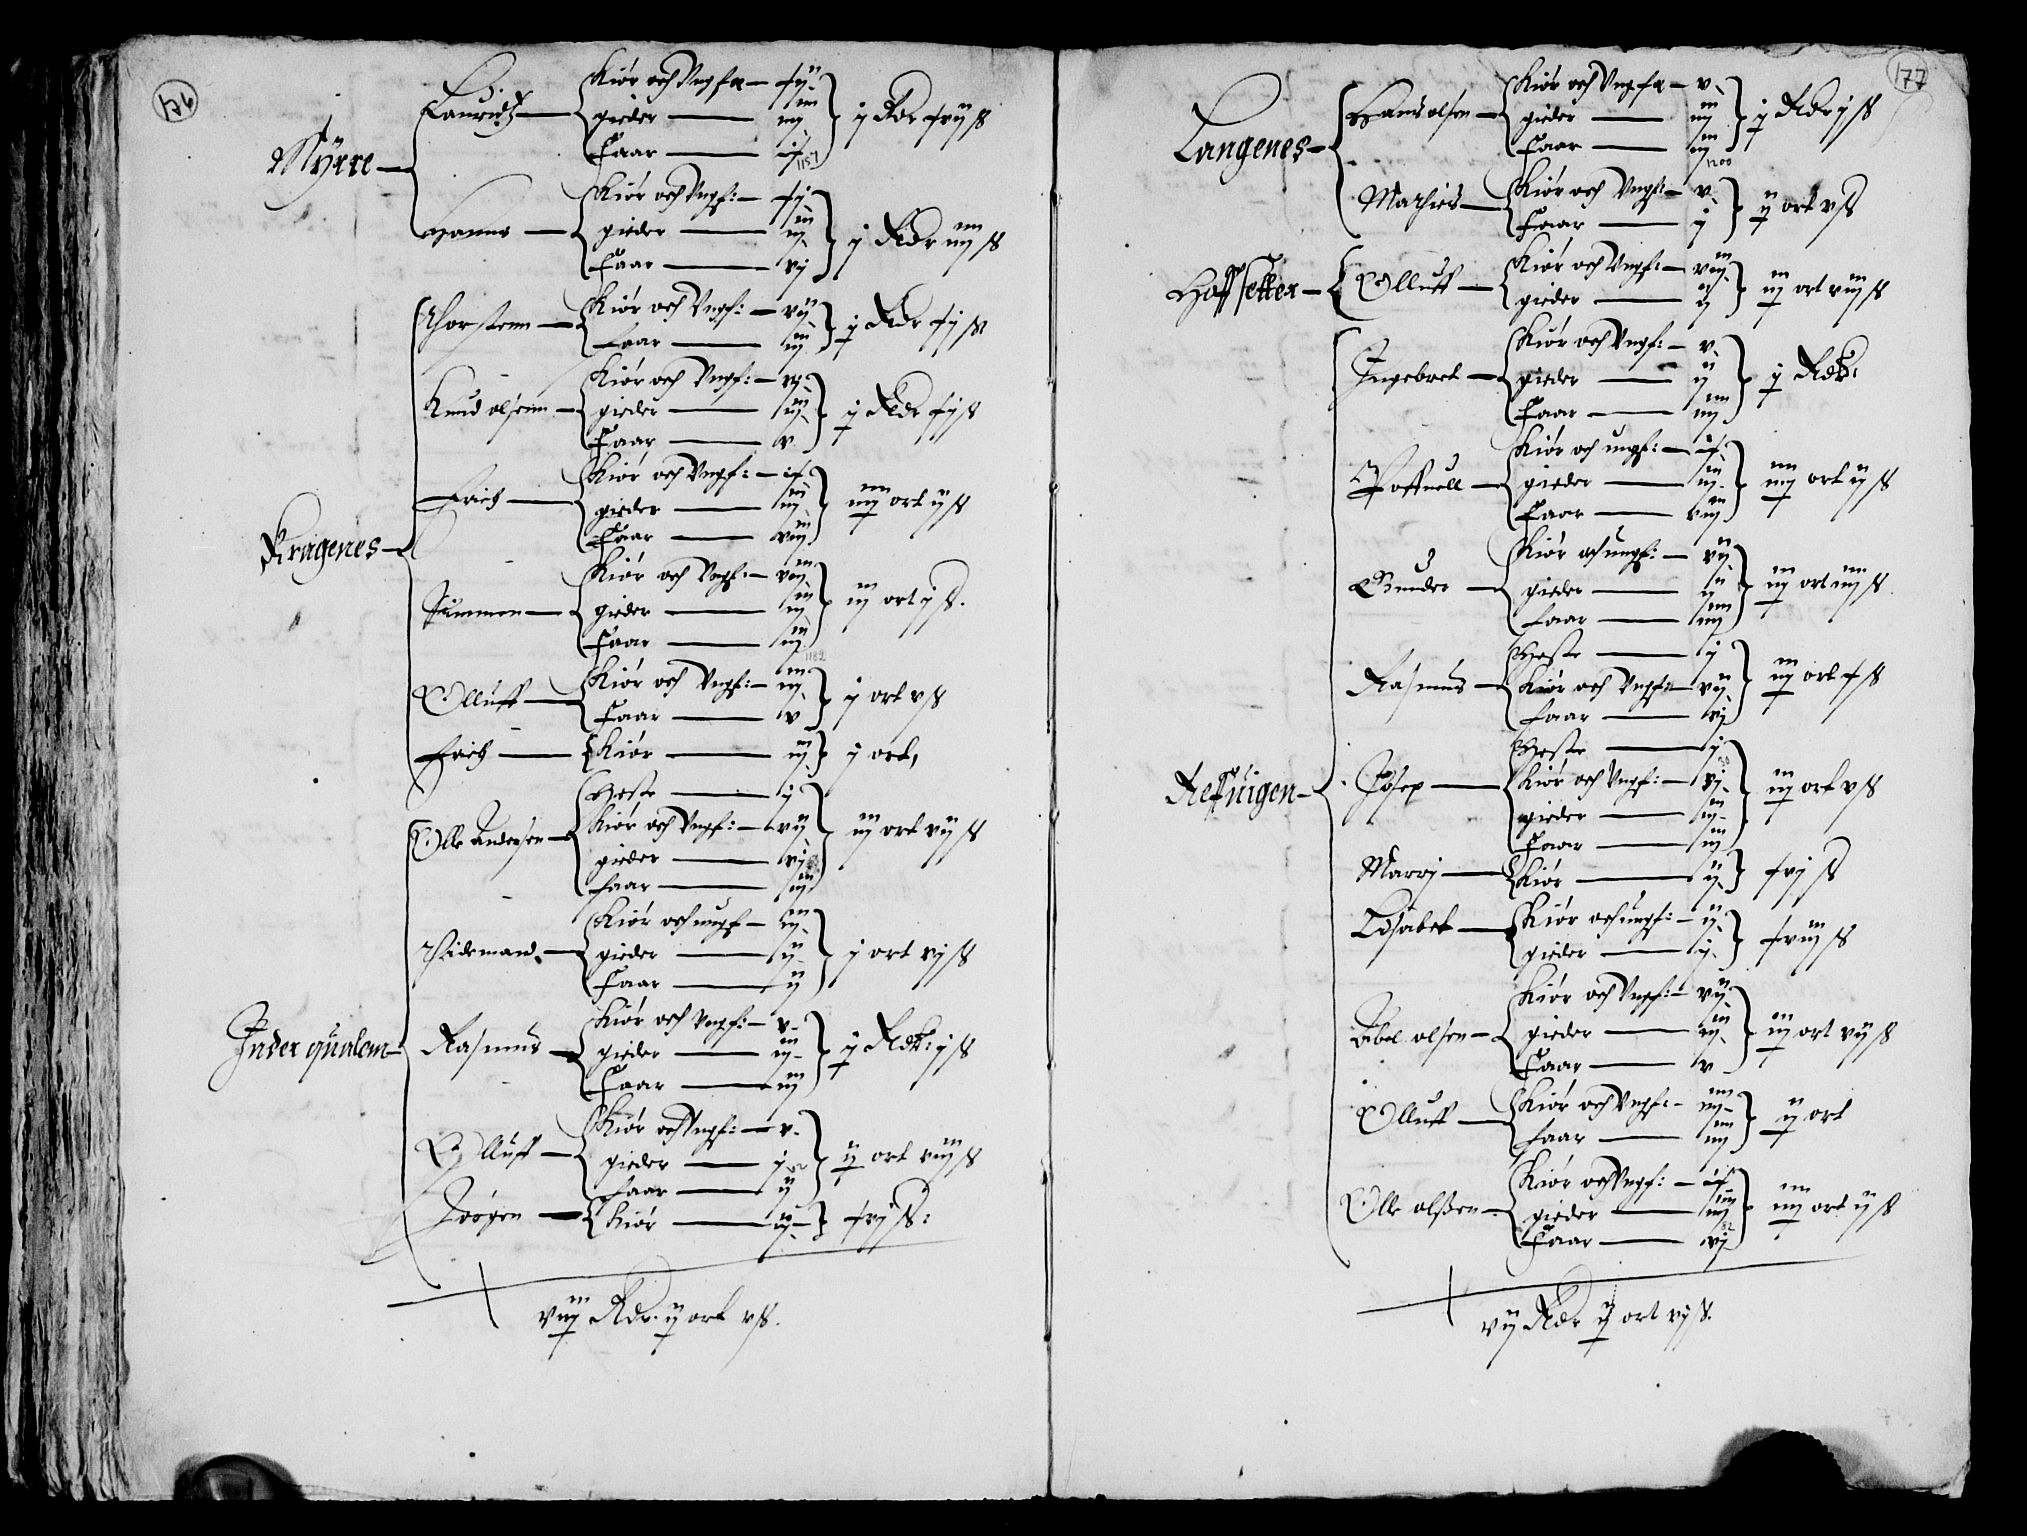 176
Myrre
Lauridz
Kiör och Ungfæ — xij
gieder — iiij
Faar — ix
j Rdr xvij ß
1157
Hanns
Kiör och Ungf: — xj
gieder — iij
Faar — vj
j Rdr iiij ß
Kragenes
Thorstenn
Kiör och Ungf: — vij
Faar — iij
j Rdr xj ß
Knud olsenn
Kiör och Ungf: — vj
gieder — iij
Faar — v
j Rdr xj ß
Erich
Kiör och Ungf: — ix
gieder — iij
Faar — viij
iiij ort ij ß
Simmen
Kiör och Ungf: — viij
gieder — iij
Faar — iij
iij ort j ß.
1182
Olluff
Kiör och Ungf: — iij
Faar — v
j ort v ß
Erich
Kiör — iij
j ort,
Inder qualen
Olle Andersen
Heste — j
Kiör och Ungf: — vij
gieder — vj
faar — iij
iij ort vij ß
Tidemand
Kiör och ungf — iij
gieder — ij
Faar — ij
j ort vj ß
Rasmus
Kiör och Ungf: — v
gieder — iij
Faar — iij
j Rdr: j ß
Olluff
Kiör och Ungf: — v
gieder — j
faar — ij
ij ort viij ß
Jörgen
Kiör — ij
xvj ß:
viij Rdr. ij ort v ß.
177
Langenes
Hans olsen
Kiör och Ungfæ — v
gieder — iij
Faar — iij
j Rdr j ß
1200
Mathies
Kiör och Ungf: — v
Faar — j
ij ort v ß
Hoffsetter
Olluff
Kiör och Ungf: — viij
gieder — ij
iij ort viij ß
Reffuigen
Ingebret
Kiör och Ungf: — v
gieder — ij
Faar — iiij
j Rdr:
Poffuell
Kiör och ungf: — ix
gieder — iij
Faar — viij
iiij ort ij ß
Gunder
Kiör och ungf: — vij
gieder — ij
faar — iiij
iij ort iiij ß
Rasmus
Heste — j
Kiör och Ungfæ — vij
faar — vj
iij ort x ß
Josep
Heste — j
Kiör och Ungf: — vj
gieder — iij
Faar — iij
iij ort v ß
Marrj
Kiör — ij
xvj ß
Lisabet
Kiör och ungf: — ij
gieder — j
xviij ß
Abel olsen
Kiör och Ungf: — vij
gieder — iij
Faar — v
iij ort vij ß
Olluff
Kiör och Ungf: — iiij
faar — iiij
ij ort
Olle olssen
Kiör och Ungf: — ix
gieder — iiij
Faar — vj
iiij ort ij ß
vij Rdr ij ort vj ß.